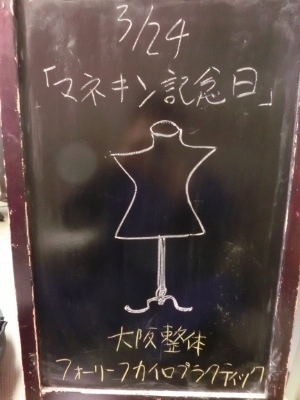 3/24
「マネキン記念日」
大阪整体
フォーリーフカイロプラクティック